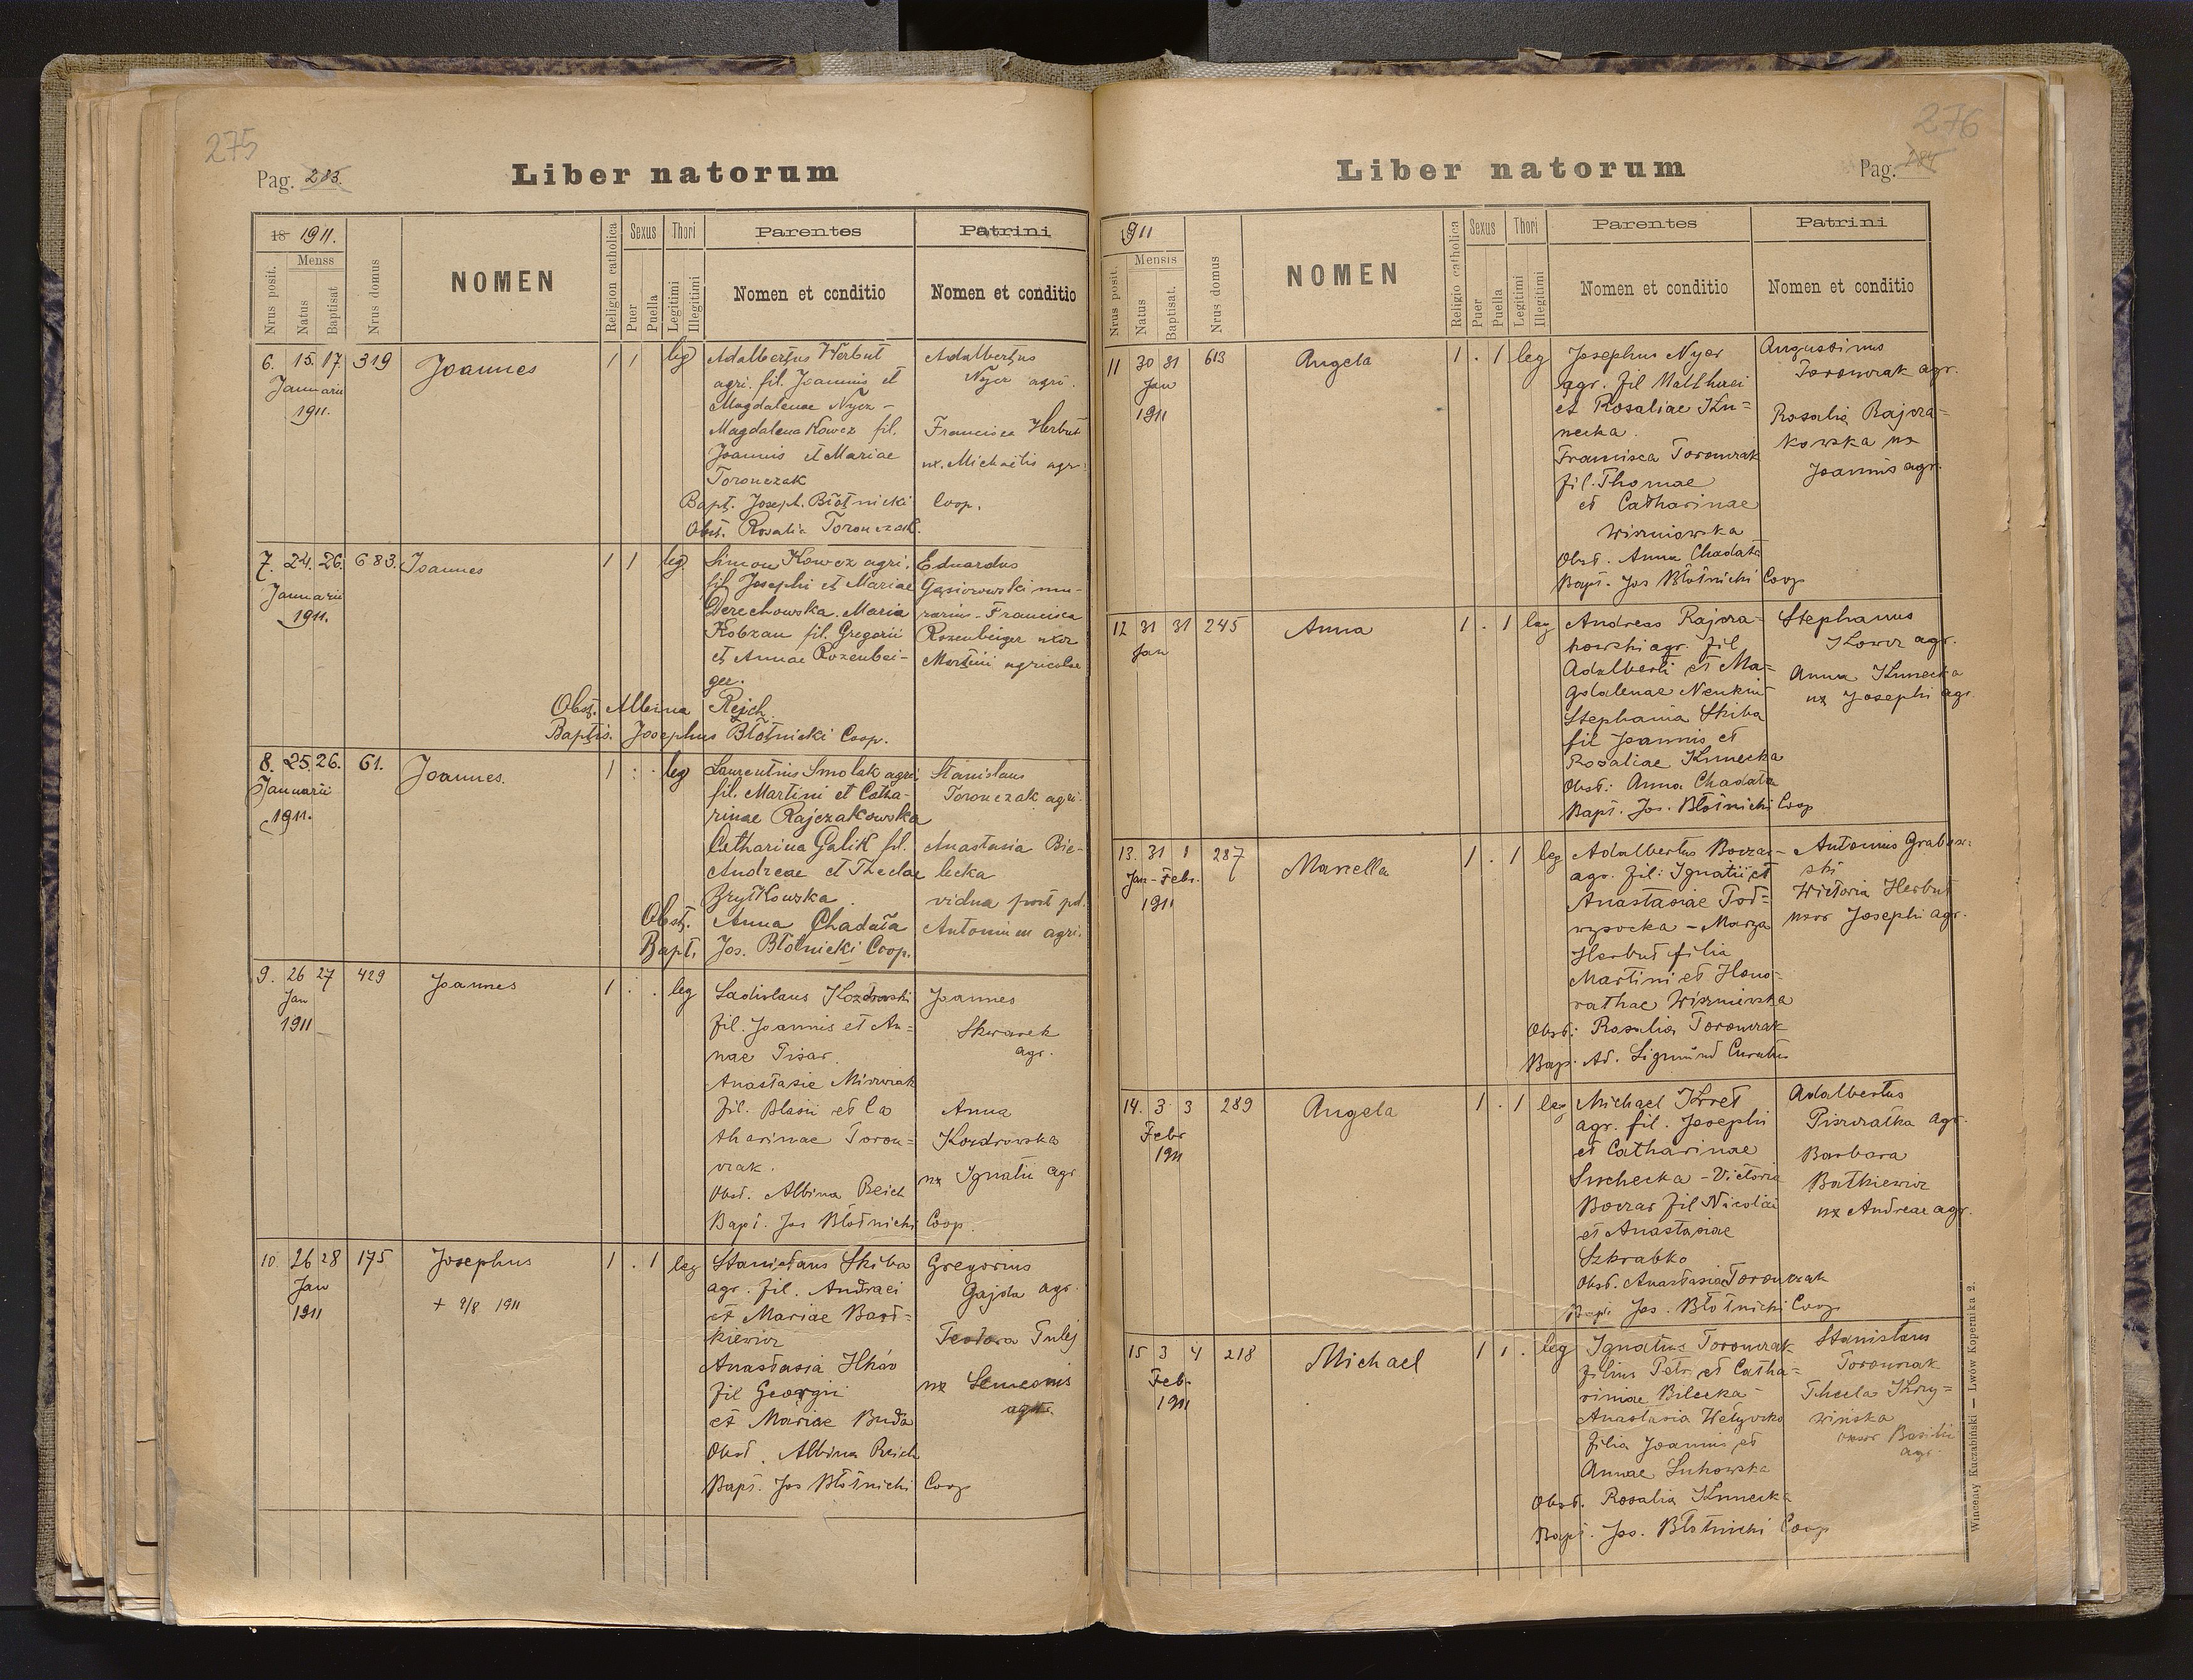 275
Pag. 283.
Liber natorum
18 1911.
Menss
Nrus posit.
Natus
Baptisat
Nrus domus
NOMEN
Religion catholica
Sexus
Puer
Puella
Thori
Legitimi
Illegitimi
Parentes
Nomen et conditio
Patrini
Nomen et conditio
6. 15. 17. 319 Joannes 1 1 leg
Januarii
1911.
Adalbertus Herbut
agri. fil. Joannis et
Magdalenae Nycz -
Magdalena Kowcz fil.
Joannis et Mariae
Toronczak
Adalbertus
Nycz agri.
Francisca Herbut
ux. Michaelis agr.
Bapt. Joseph. Błotnicki Coop.
Obst. Rosalia Toronczak.
7. 24. 26. 683. Joannes 1 1 leg.
Januarii
1911.
Simon Kowcz agri.
fil Josephi et Mariae
Derechowska. Maria
Kobzan fil. Gregorii
et Annae Rozenbei-
ger.
Eduardus
Gąsiorowski mu-
rarius - Francisca
Rozenbeiger uxor
Martini agricolae
Obst. Albina Rejch
Baptis. Josephus Błotnicki Coop.
8. 25. 26. 61. Joannes. 1 : . leg
Januarii
1911.
Laurentius Smolak agri.
fil. Martini et Catha-
rinae Rajczakowska
Catharina Galik fil.
Andreae et Theclae
Brytkowska
Stanislaus
Toronczak agri.
Anastasia Bie-
lecka
vidua post pd.
Antonium agri.
Obst. Anna Chadała
Bapt. Jos. Błotnicki Coop.
9. 26 27 429 Joannes 1 : . leg
Jan
1911
Ladislaus Kozdrowski
fil. Joannis et An=
nae Pisar.
Anastasie
fil. Blasii et Ca
tharinae Toron=
czak.
Joannes
Skwarek
agr.
Anna
Kozdrowska
ux Ignatii agr
Obst. Albina Reich
Bapt. Jos Błotnicki Coop.
10. 26 28 175 Josephus 1 . 1 leg
Jan
1911
+ 8/8 1911
Stanislaus Skiba
agr. fil. Andraei
et Mariae Bart=
kiewicz
Anastasia Ilków
fil Georgii
et Mariae Buda
Gregorius
Gajda agr.
Teodora Tulej
ux Semeonis
agr.
Obst. Albina Reich
Bapt. Jos Błotnicki Coop
276
Liber natorum
Pag. 284
1911
Mensis
Nrus posit.
Natus
Baptisat.
Nrus domus
NOMEN
Religio catholica
Sexus
Puer
Puella
Thori
Legitimi
Illegitimi
Parentes
Nomen et conditio
Patrini
Nomen et conditio
11 30 31 613 Angela 1 . 1 leg
Jan
1911
Josephus Nycz
agr. fil Matthaei
et Rosaliae Ku=
necka.
Francisca Toronczak
fil. Thomae
et Catharinae
Wiszniowska
Augustinus
Toronczak agr.
Rosalia Rajcza=
kowska ux
Joannis agr.
Obst. Anna Chadała
Bapt. Jos Błotnicki Coop
12 31 31 245 Anna 1 . 1 leg
Jan
Andreas Rajcza-
kowski agr. fil
Adalberti et Ma=
gdalenae
Stephania Skiba
fil Joannis et
Rosaliae Kunecka
Stephanus
Kowcz agr.
Anna Kunecka
ux Josephi agr.
Obst: Anna Chadała
Bapt. Jos. Błotnicki Coop
13. 31 1 287 Marcella 1 . 1 leg
Jan - Febr.
1911
Adalbertus Boczar-
agr. fil: Ignatii et
Anastasiae Pod=
wysocka - Marya
Herbut filia
Martini et Hono=
rathae Wiszniewska
Antonius Grabow-
ski
Wictoria Herbut
uxor Josephi agr.
Obst: Rosalia Toronczak
Bap. Ad. Sigmund Curatus
14. 3 3 289 Angela 1 . 1 leg
Febr
1911
Michael Kret
agr. fil. Josephi
et Catharinae
Suchecka - Victoria
Boczar fil Nicolai
et Anastasiae
Szkrabko
Adalbertus
Piszczatka agr.
Barbara
Batkiewicz
ux Andreae agr.
Obst. Anastasia Toronczak
Bapt. Jos. Błotnicki Coop
15 3 4 218 Michael 1 1 . leg
Feb.
1911
Ignatius Toronczak
filius Petri et Catha-
rinae Bilecka -
Anastasia
filia Joannis et
Annae Sukowska
Stanislaus
Toronczak
Thecla Kry=
wińska
uxor Basilii
agr.
Obst. Rosalia Kunecka
Bapt. Jos. Błotnicki Coop
Wincenty Kuczabiński — Lwów Kopernika 2.